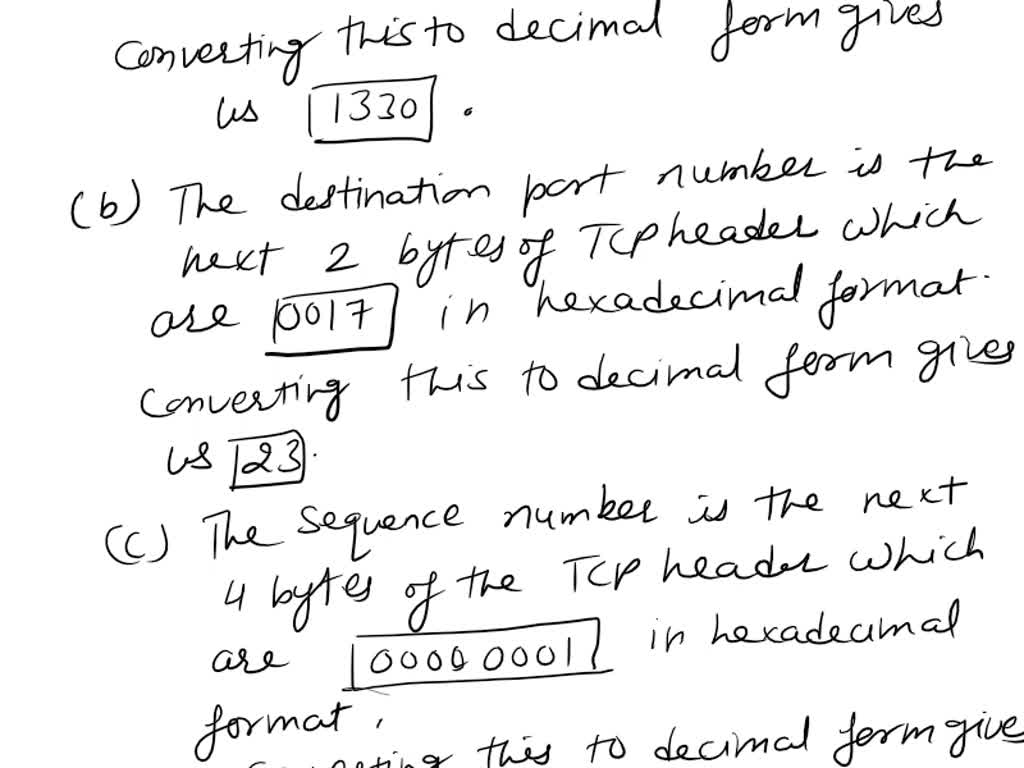 Converting this to decimal form gives
us 1330 .
(b) The destination port number is the
next 2 bytes of TCP header which
are 0017 in hexadecimal format.
Converting this to decimal form gives
us 23.
(c) The sequence number is the next
4 bytes of the TCP header which
are 0000 0001 in hexadecimal
format.
Converting this to decimal form give